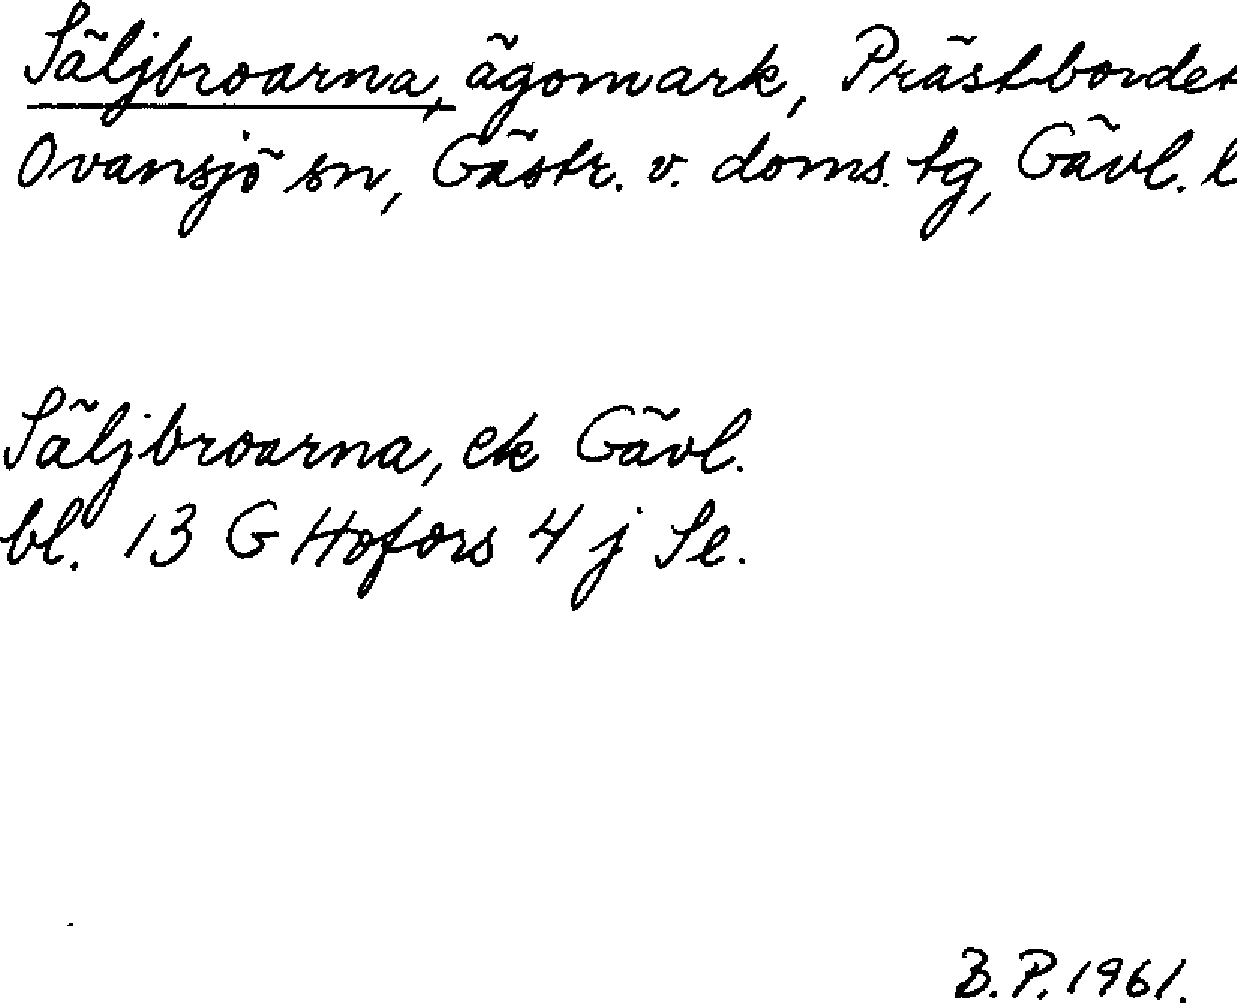 Säljbroarna, ägomark, Prästbordet
Ovansjö sn, Gästr. v. doms. tg, Gävl. l
Säljbroarna, ek Gävl.
bl. 13 G Hofors 4 j Se.
B. P. 1961.